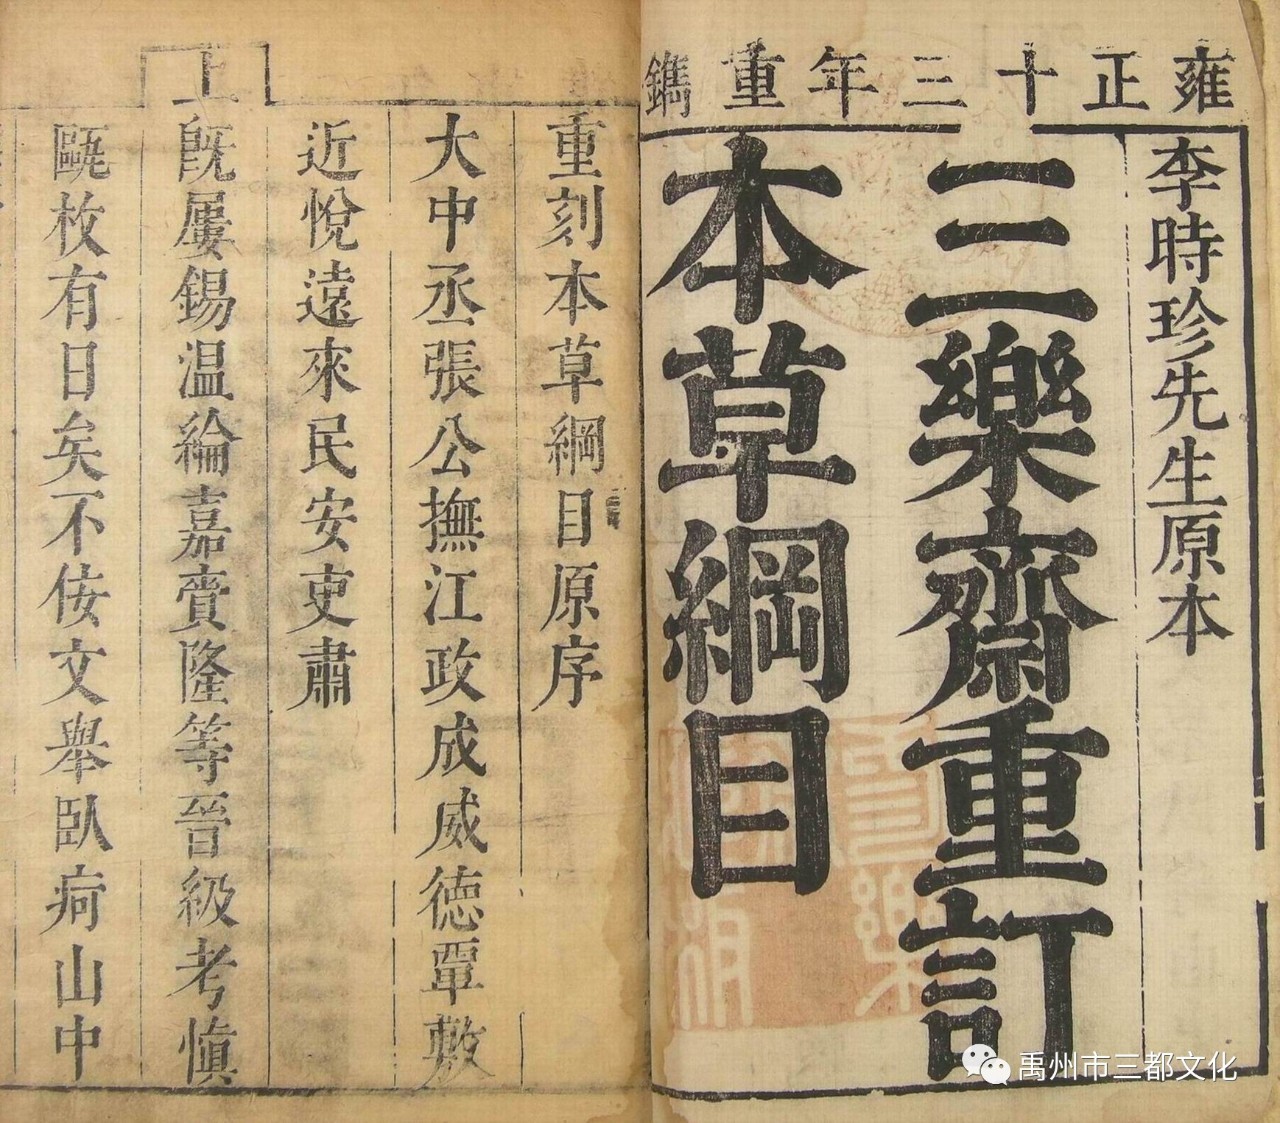 雍正十三年重鐫
李時珍先生原本
三樂齋重訂
本草綱目
重刻本草綱目原序
大中丞張公撫江政成威德覃敷
近悅遠來民安吏肅
上
既屢錫温綸嘉賚隆等晉級考慎
甌枚有日矣不佞文舉臥痾山中
禹州市三都文化